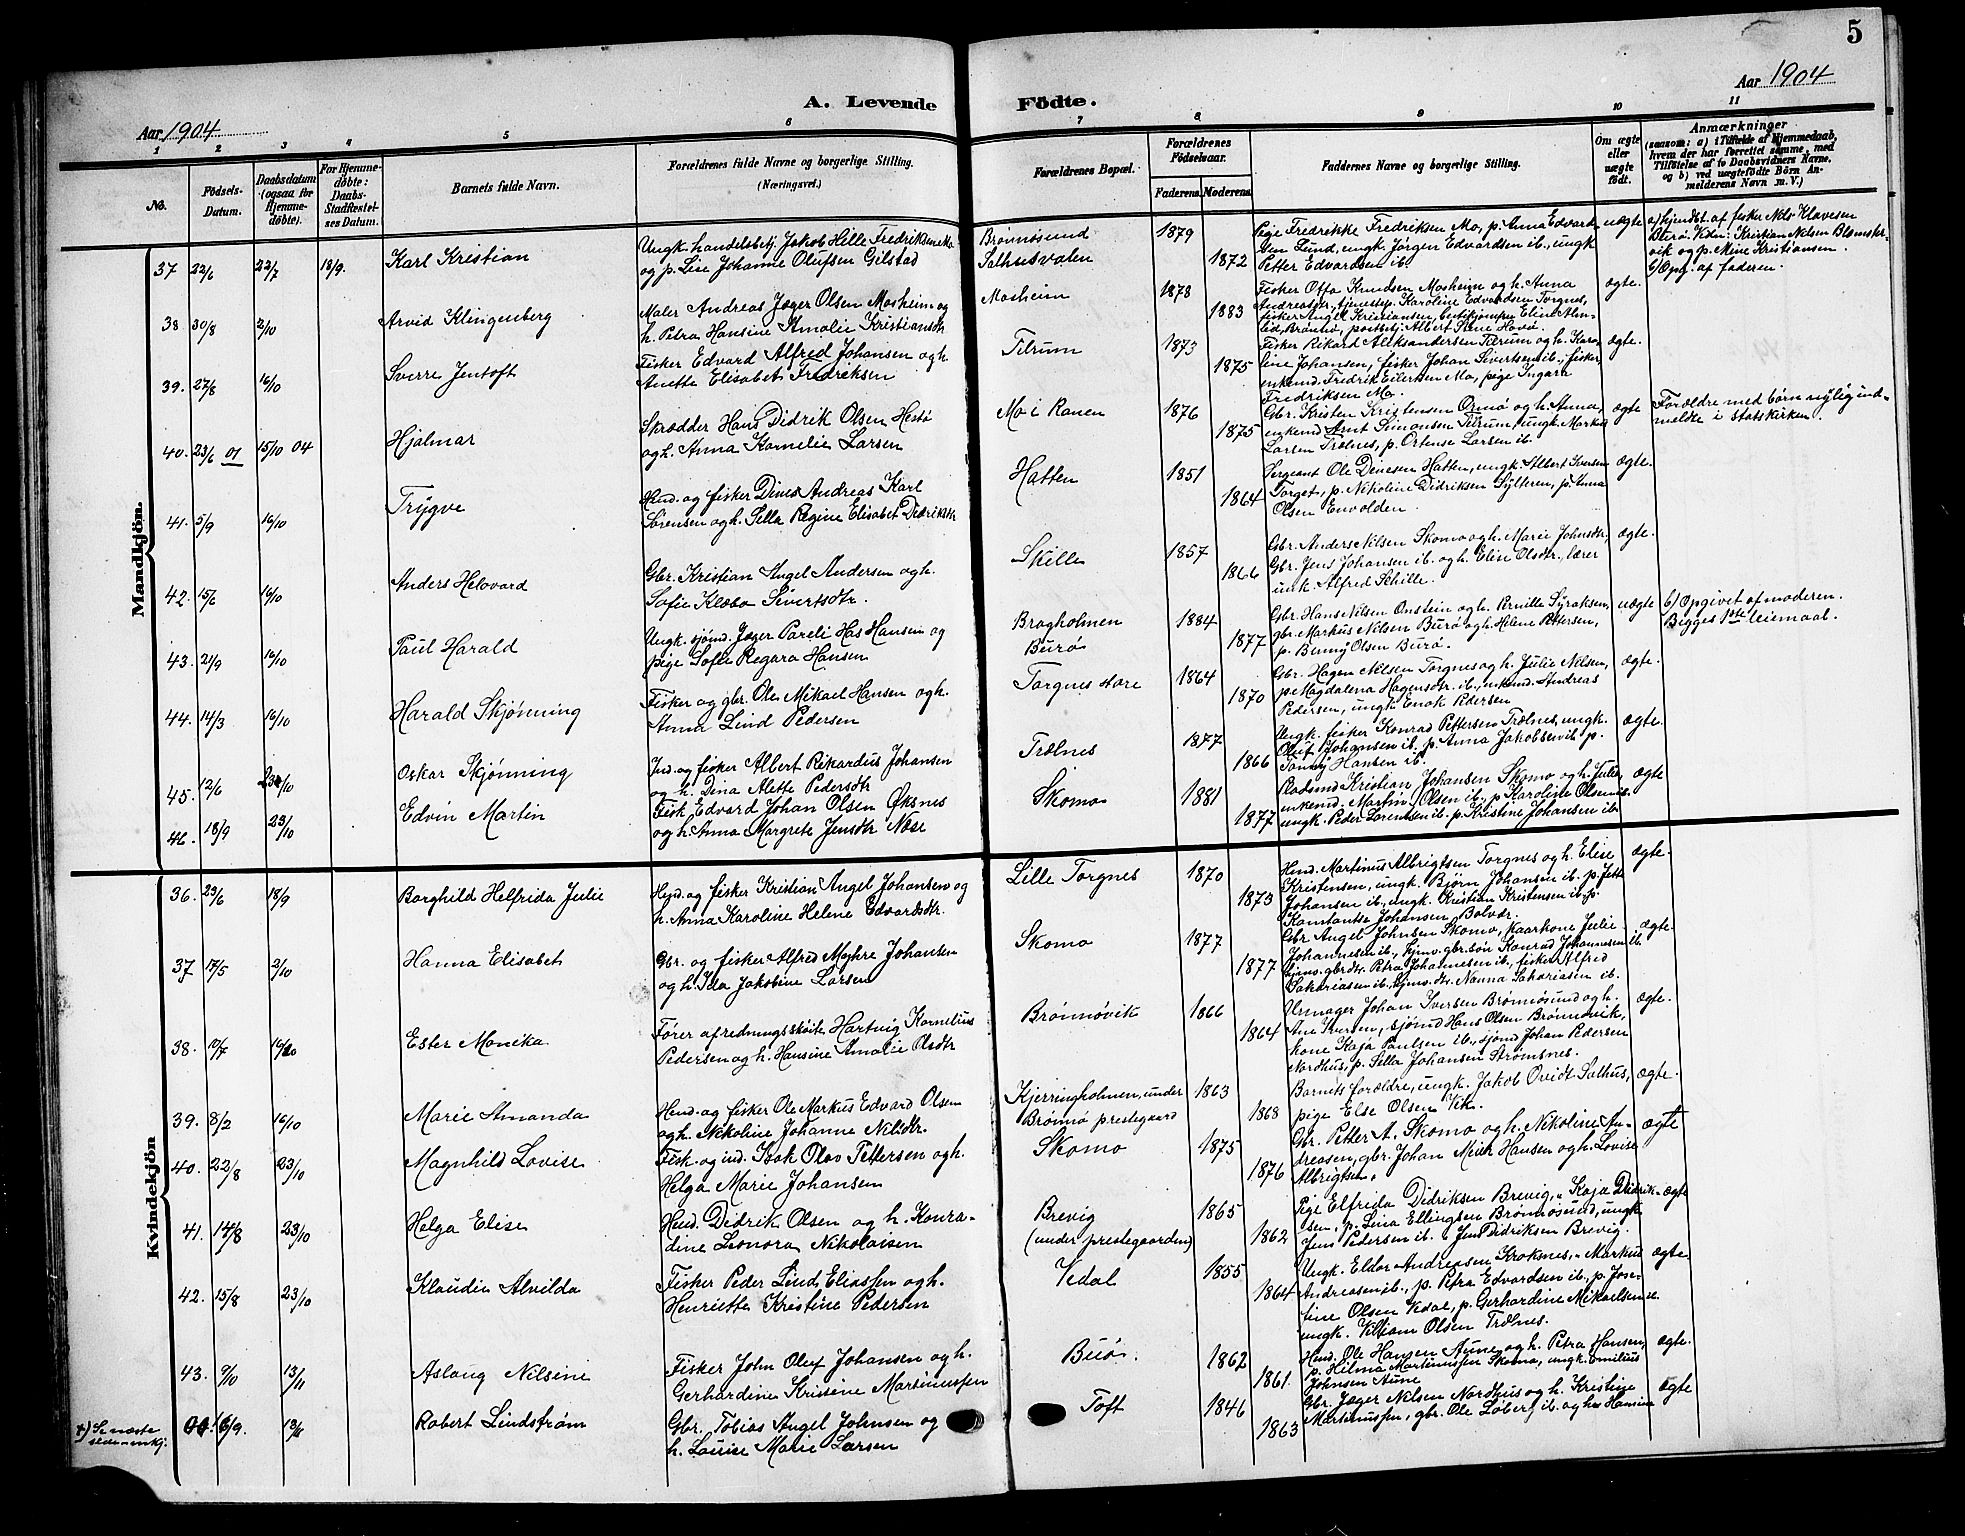 5
Aar 1904
A. Levende Födte.
Aar 1904
1 2 3 4 5 6 7 8 9 10 11
No.
Födsels-Datum.
Daabsdatum (ogsaa for Hjemme-döbte).
For Hjemme-döbte: Daabs-Stadfæstelses Datum.
Barnets fulde Navn.
Forældrenes fulde Navne og borgerlige Stilling.
(Næringsvei.)
Forældrenes Bopæl.
Forældrenes Födselsaar.
Faderens. Moderens.
Faddernes Navne og borgerlige Stilling.
Om ægte eller uægte födt.
Anmærkninger
(saasom: a) i Tilfælde af Hjemmedaab,
hvem der har forrettet samme, med
Tilføielse af to Daabsvidners Navne,
og b) ved uægtefödte Börn An-
melderens Navn m. V.)
Mandkjön.
37 22/6 22/7 18/9. Karl Kristian
Ungk. handelsbetj. Jakob Hille Fredriksen Mo
og p. Lise Johanne Olufsen Gilstad
Brønnøsund
Salhusvalen
1879 1872
Pige Fredrekke Fredriksen Mo, p. Anna Edvard
sen Lund, ungk. Jørgen Edvardsen ib., ungk
Petter Edvardsen ib.
uægte
a) hjemdøbt af fisker Nils Klavesen
Vidn: Kristian Nilsen Blomster-
vik og p. Mine Kristiansen.
b) Opg. af faderen.
38 30/8 2/10 Arvid Klingenberg
Maler Andreas Jæger Olsen Mosheim og
h. Petra Hansine Amalie Kristiansdtr
Mosheim
1878 1883
Fisker Otto Knudsen Mosheim og h. Anna
Andreasdtr, tjenestep. Karoline Edvardsen Torgnes,
fisker Angel Kristiansen,
ægte.
39. 27/8 16/10 Sverre Jentoft
Fisker Edvard Alfred Johansen og h
Anette Elisabet Fredriksen
Tilrum
1873 1875
Fisker Rikard Aleksandersen Tilrum og h. Karo,
line Johansen, fisker Johan Sivertsen ib., fisker,
enkemd. Fredrik Eilertsen Mo, pige Ingara
Fredriksen Mo.
ægte.
40. 23/6 01 15/10 04 Hjalmar
Skrædder Hans Didrik Olsen Hestø
og h. Anna Kornelie Larsen
Mo i Ranen
1876 1875
Gbr. Kristen Kristensen Ormø og h. Anna,
enkemd Arnt Simonsen Tilrum, ungk. Markus
Larsen Trælnes, p. Ortense Larsen ib.
ægte
Forældre med børn nylig ind-
meldte i statskirken.
41. 5/9 16/10 Trygve
Hmd. og fisker Dines Andreas Karl
Sørensen og h. Sella Regine Elisabet Didriksdtr
Hatten
1851 1864
Sergeant Ole Dinesen Hatten, ungk. Albert Iversen
Torget, p. Nikoline Didriksen Sylteren, p. Anna
Olsen Envolden.
ægte.
42. 15/6 16/10 Anders Helovard
Gbr. Kristian Angel Andersen og h.
Sofie Klæbo Sivertsdtr.
Skille
1857 1866
Gbr. Anders Nilsen Skomo og h. Marie Johnsdtr,
Gbr. Jens Johansen ib. og h. Elise Olsdtr., lærer
unk. Alfred Schille.
ægte.
43. 21/9 16/10 Paul Harald
Ungk. sjømd. Jæger Pareli Has Hansen og
pige Sofie Regara Hansen
Bragholmen
Burø
1884 1877
Gbr. Hans Nilsen Onstein og h. Pernille Syraksen,
gbr. Markus Nilsen Burø og h. Helene Pettersen,
p. Benny Olsen Burø.
uægte
b) Opgivet af moderen.
Bigges 1ste leiemaal.
44. 14/3 16/10 Harald Skjønning
Fisker og gbr. Ole Mikael Hansen og h.
Anna Lind Pedersen
Torgnes store
1864 1870
Gbr. Hagen Nilsen Torgnes og h. Julie Nilsen,
p. Magdalena Hagensdtr. ib., enkemd. Andreas
Pedersen, ungk Enok Pedersen
ægte.
45. 12/6 23/10 Oskar Skjønning
Ind. og fisker Albert Rikardius Johansen
og h. Dina Alette Pedersdtr
Trælnes
1877 1866
Ungk. fisker Konrad Pettersen Trælnes, ungk.
Oluf Johansen ib. p. Anna Jakobsen ib. p.
Tonny Hansen ib.
ægte.
46. 18/9 23/10 Edvin Martin
Fisk. Edvard Johan Olsen Øksnes
og h. Anna Margrete Jensdtr Næse
Skomo
1881 1877
Pladsmd Kristian Johansen Skomo og h. Julie,
enkemd. Martin Olsen ib. p. Karoline Olsen ib.
ungk. Peder Lorentsen ib. p. Kristine Johansen ib
ægte
Kvindekjön
36. 23/6 18/9 Borghild Helfrida Julie
Hmd. og fisker Kristian Angel Johansen og
h. Anna Karoline Helene Edvardsdtr.
Lille Torgnes
1870 1873
Hmd. Martinus Albrigtsen Torgnes og h. Elise
Kristensen, ungk. Bjørn Johansen ib. p. Jette
Johansen ib., ungk. Kristian Kristensen ib. p.
Konstantse Johansen Bolvær.
ægte.
37 17/5 2/10 Hanna Elisabet
Gbr. og fisker Alfred Myhre Johansen
og h. Ida Jakobine Larsen
Skomo
1877 1877
Gbr Angel Johnsen Skomo, kaarkone Julie
Johannesen ib., hjmv. gbr.søn Konrad Johannesen ib.
hjmv. gbrdtr. Petra Johannesen ib., fisker Alfred
Sakariasen ib., hjmv. dtr. Nanna Sakariasen ib.
ægte
38. 10/7 16/10 Ester Monika
Fører af redningsskøite Hartvig Kornelius
Pedersen og h. Hansine Amalie Olsdtr
Brønnøvik
1866 1864
Urmager Johan Iversen Brønnøsund og h.
Ane Iversen, sjømd Hans Olsen Brønnøvik,
kone Kaja Paulsen ib., sjømd Johan Pedersen
Nordhus, p. Sella Johansen Strømsnes.
ægte.
39. 8/2 16/10 Marie Amanda
Hmd. og fisker Ole Markus Edvard Olsen
og h. Nikoline Johanne Nilsdtr.
Kjerringholmen, under
Brønnø prestegaard
1863 1868
Barnets forældre, ungk. Jakob Ovidt Salhus,
pige Else Olsen Vik.
ægte.
40. 22/8 23/10 Magnhild Lovise
Fisk. og ind. Isak Olav Pettersen og h.
Helga Marie Johansen
Skomo
1875 1876
Gbr. Petter A. Skomo og h. Nikoline An-
dreasen, gbr. Johan Meier Hansen og h. Lovise
Albrigtsen.
ægte
41. 14/8 23/10 Helga Elise
Hmd. Didrik Olsen og h. Konra-
dine Leonora Nikolaisen
Brevig
(under prestegaarden)
1865 1862
Pige Elfrida Didriksen Brevig, " Kaja Didrik-
sen, p. Lina Ellingsen Brønnøsund, ungk
Jens Pedersen ib. " Jens Didriksen Brevig.
ægte
42. 15/8 23/10 Klaudia Alvilda
Fisker Peder Lind Eliassen og h.
Henriette Kristine Pedersen
Vedal
1855 1864
Ungk. Eldor Andreasen Kroknes, " Markus
Andreasen ib., p. Petra Edvardsen ib., p. Jose-
fine Olsen Vedal, p. Gerhardine Mikaelsen ib.
ungk. Villiam Olsen Trælnes.
ægte.
43. 9/10 13/11 Aslaug Nilsine
Fisker John Oluf Johansen og h.
Gerhardine Kristine Martinussen
Buø.
1862 1861.
Hmd. Ole Hansen Aune og h. Petra Hansen,
p. Hilma Martinussen Skomo, ungk. Emilius
Johnsen Aune
ægte.
x) Se næste
side mandkj.
6/9. 13/11 Robert Lindstrøm
Gbr. Tobias Angel Johnsen og
h. Louise Marie Larsen
Toft
1846 1863
Gbr. Jæger Nilsen Nordhus og h. Kristine
Martinussen, gbr. Ole Løberg ib. og h. Hansine
ægte